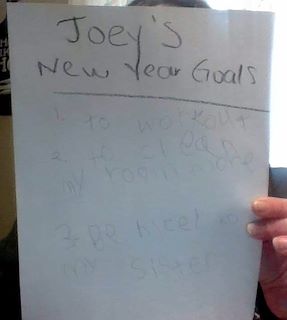 Joey's
New Year Goals
1. to workout
2. to clean
my room more
3 Be nicer to
my sister